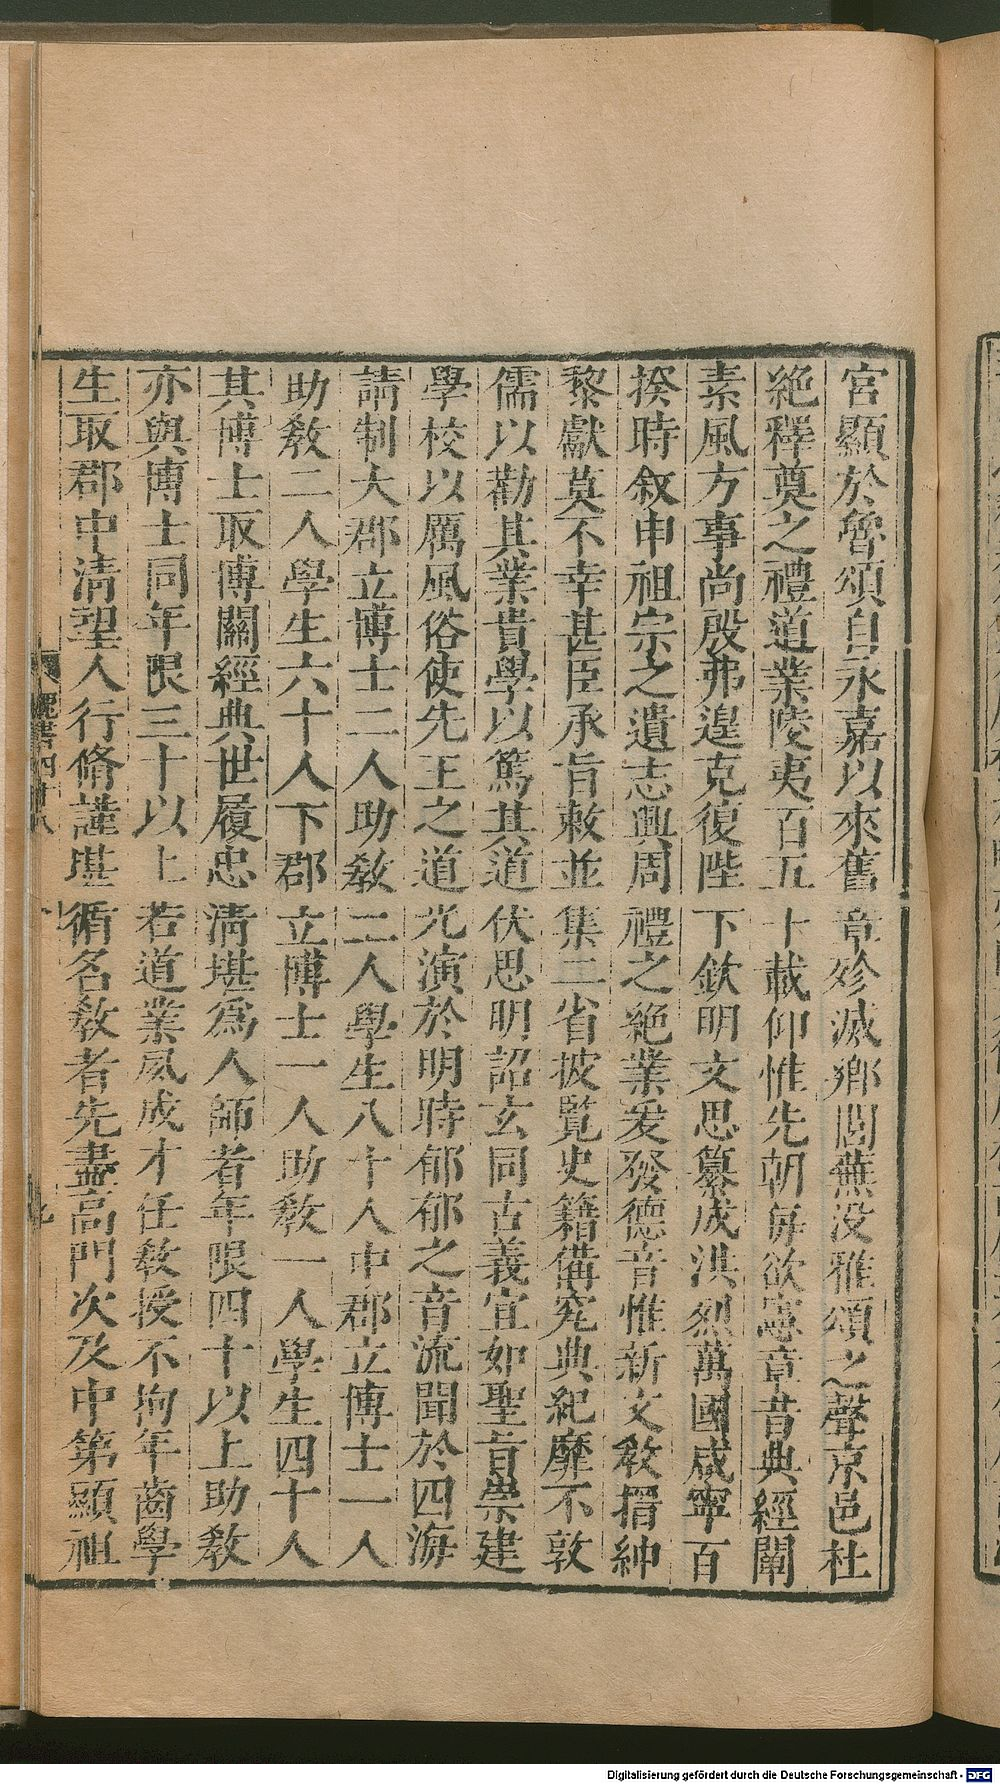 宮顯於魯頌自永嘉以來舊章殄滅鄉閭蕪没雅頌之聲京邑杜
絶釋奠之禮道業陵夷百五十載仰惟先朝每欲憲章昔典經闡
素風方事尚殷弗遑克復陛下欽明文思纂成洪烈萬國咸寧百
揆時敘申祖宗之遺志興周禮之絶業爰發德音惟新文教搢紳
黎獻莫不幸甚臣承旨敕並集二省披覽史籍備究典紀靡不敦
儒以勸其業貴學以篤其道伏思明詔玄同古義宜如聖旨崇建
學校以厲風俗使先王之道光演於明時郁郁之音流聞於四海
請制大郡立博士二人助教二人學生八十人中郡立博士一人
助教二人學生六十人下郡立博士一人助教一人學生四十人
其博士取博關經典世履忠清堪爲人師者年限四十以上助教
亦與博士同年限三十以上若道業夙成才任教授不拘年齒學
生取郡中清望人行脩謹堪循名教者先盡高門次及中第顯祖
魏書四十八
九
Digitalisierung gefördert durch die Deutsche Forschungsgemeinschaft - DFG